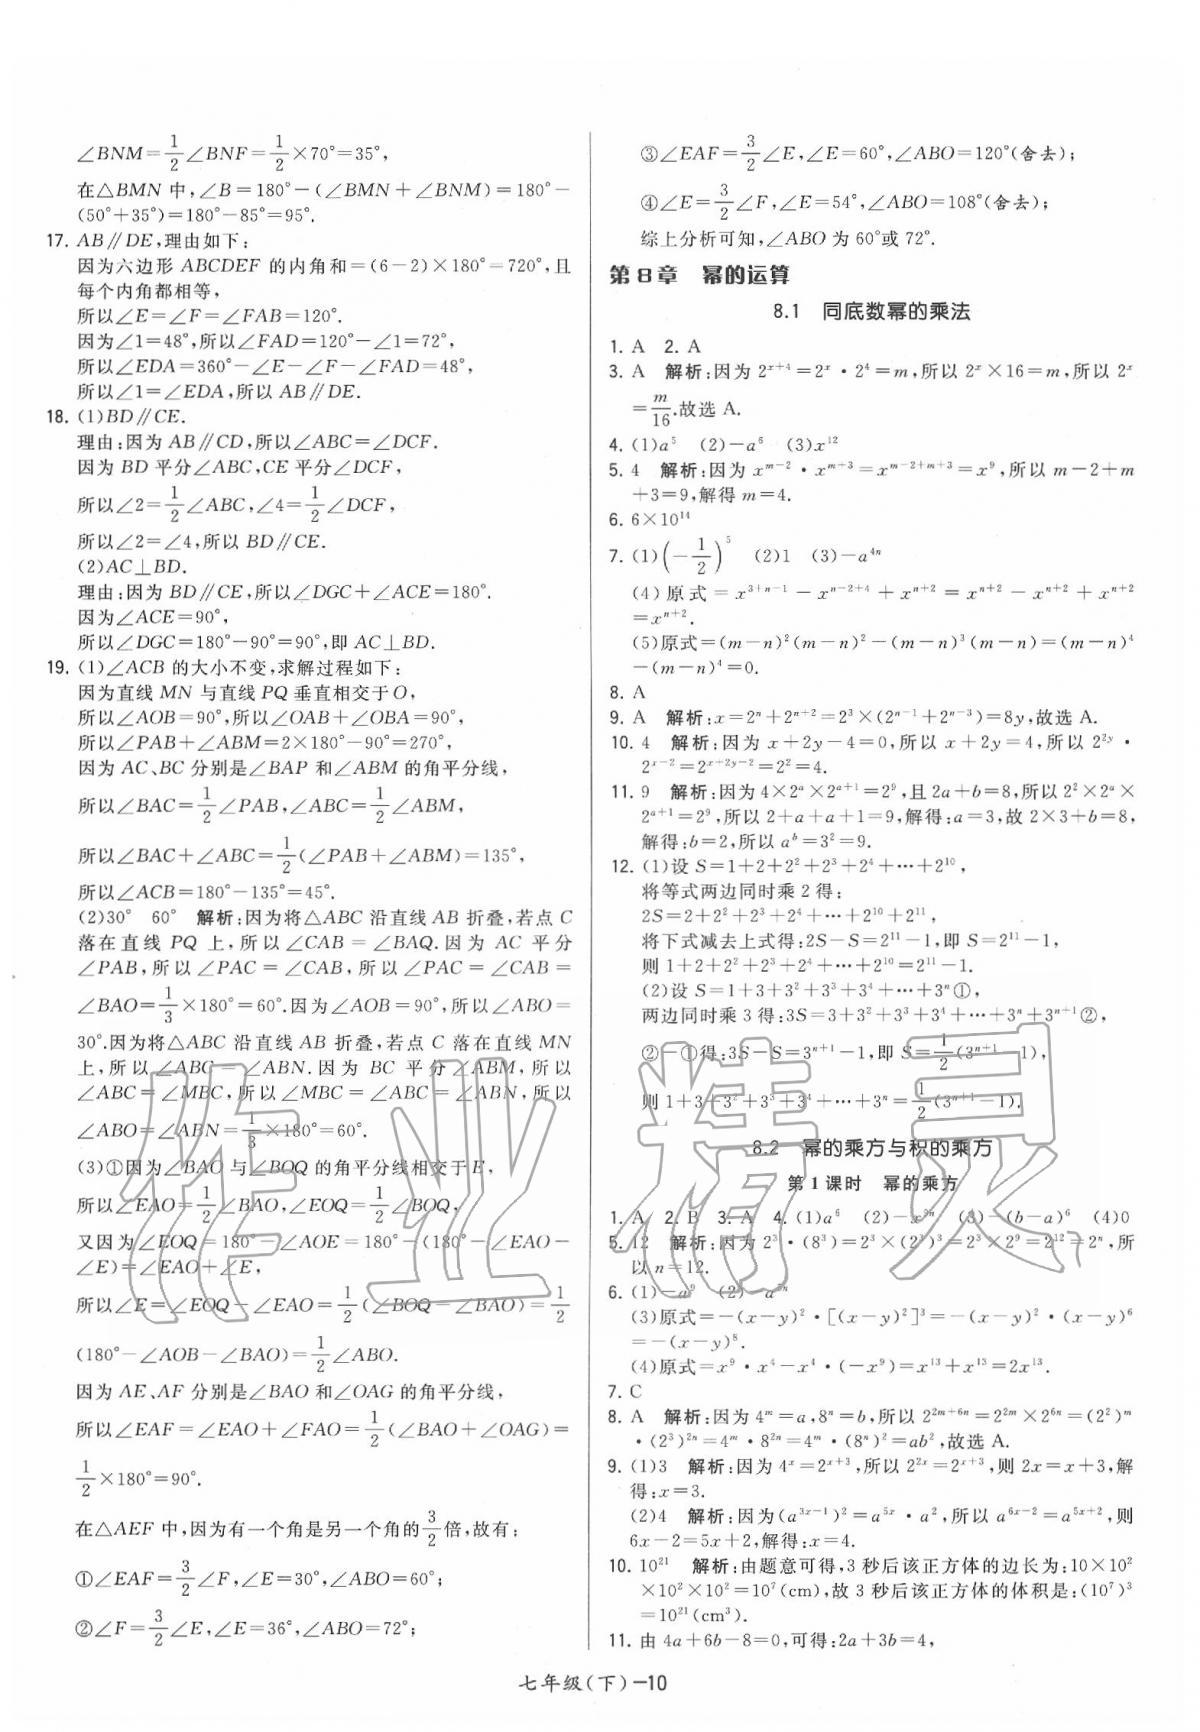 ∠BNM=1/2∠BNF=1/2×70°=35°,
在△BMN 中,∠B=180°-(∠BMN+∠BNM)=180°-
(50°+35°)=180°-85°=95°.
17. AB∥DE,理由如下:
因为六边形 ABCDEF 的内角和=(6-2)×180°=720°,且
每个内角都相等,
所以∠E=∠F=∠FAB=120°.
因为∠1=48°,所以∠FAD=120°-∠1=72°,
所以∠EDA=360°-∠E-∠F-∠FAD=48°,
所以∠1=∠EDA,所以 AB∥DE.
18. (1)BD∥CE.
理由:因为 AB∥CD,所以∠ABC=∠DCF.
因为 BD 平分∠ABC,CE 平分∠DCF,
所以∠2=1/2∠ABC,∠4=1/2∠DCF,
所以∠2=∠4,所以 BD∥CE.
(2)AC⊥BD.
理由:因为 BD∥CE,所以∠DGC+∠ACE=180°.
因为∠ACE=90°,
所以∠DGC=180°-90°=90°,即 AC⊥BD.
19. (1)∠ACB 的大小不变,求解过程如下:
因为直线 MN 与直线 PQ 垂直相交于O,
所以∠AOB=90°,所以∠OAB+∠OBA=90°,
所以∠PAB+∠ABM=2×180°-90°=270°,
因为 AC、BC 分别是∠BAP 和∠ABM 的角平分线,
所以∠BAC=1/2∠PAB,∠ABC=1/2∠ABM,
所以∠BAC+∠ABC=1/2(∠PAB+∠ABM)=135°,
所以∠ACB=180°-135°=45°.
(2)30° 60° 解析:因为将△ABC 沿直线 AB 折叠,若点 C
落在直线 PQ 上,所以∠CAB=∠BAQ.因为 AC 平分
∠PAB,所以∠PAC=∠CAB,所以∠PAC=∠CAB=
∠BAO=1/3×180°=60°.因为∠AOB=90°,所以∠ABO=
30°.因为将△ABC 沿直线 AB 折叠,若点 C 落在直线 MN
上,所以∠ABC=∠ABN.因为 BC 平分∠ABM,所以
∠ABC=∠MBC,所以∠MBC=∠ABC=∠ABN,所以
∠ABO=∠ABN=1/3×180°=60°.
(3)①因为∠BAO 与∠BOQ 的角平分线相交于E,
所以∠EAO=1/2∠BAO,∠EOQ=1/2∠BOQ,
又因为∠EOQ=180°-∠AOE=180°-(180°-∠EAO-
∠E)=∠EAO+∠E,
所以∠E=∠EOQ-∠EAO=1/2(∠BOQ-∠BAO)=1/2
(180°-∠AOB-∠BAO)=1/2∠ABO.
因为 AE、AF 分别是∠BAO 和∠OAG 的角平分线,
所以∠EAF=∠EAO+∠FAO=1/2(∠BAO+∠OAG)=
1/2×180°=90°.
在△AEF 中,因为有一个角是另一个角的3/2倍,故有:
①∠EAF=3/2∠F,∠E=30°,∠ABO=60°;
②∠F=3/2∠E,∠E=36°,∠ABO=72°;
③∠EAF=3/2∠E,∠E=60°,∠ABO=120°(舍去);
④∠E=3/2∠F,∠E=54°,∠ABO=108°(舍去);
综上分析可知,∠ABO 为 60°或 72°.
第 8 章 幂的运算
8.1 同底数幂的乘法
1. A 2. A
3. A 解析:因为 2ˣ⁺⁴=2ˣ·2⁴=m,所以 2ˣ×16=m,所以 2ˣ
=m/16.故选 A.
4. (1)a⁵ (2)-a⁶ (3)x¹²
5. 4 解析:因为 xᵐ⁻²·xᵐ⁺³=xᵐ⁻²⁺ᵐ⁺³=x⁹,所以 m-2+m
+3=9,解得 m=4.
6. 6×10¹⁴
7. (1)(-1/2)⁵ (2)1 (3)-a⁴ⁿ
(4)原式=x³⁺ⁿ⁻¹-xⁿ⁻²⁺⁴+xⁿ⁺²=xⁿ⁺²-xⁿ⁺²+xⁿ⁺²
=xⁿ⁺².
(5)原式=(m-n)²(m-n)²-(m-n)³(m-n)=(m-n)⁴
-(m-n)⁴=0.
8. A
9. A 解析:x=2ⁿ+2ⁿ⁺²=2³×(2ⁿ⁻¹+2ⁿ⁻³)=8y,故选 A.
10. 4 解析:因为 x+2y-4=0,所以 x+2y=4,所以 2²ʸ·
2ˣ⁻²=2ˣ⁺²ʸ⁻²=2²=4.
11. 9 解析:因为 4×2ᵃ×2ᵃ⁺¹=2⁹,且 2a+b=8,所以 2²×2ᵃ×
2ᵃ⁺¹=2⁹,所以 2+a+a+1=9,解得:a=3,故 2×3+b=8,
解得:b=2,所以 aᵇ=3²=9.
12. (1)设 S=1+2+2²+2³+2⁴+…+2¹⁰,
将等式两边同时乘 2 得:
2S=2+2²+2³+2⁴+…+2¹⁰+2¹¹,
将下式减去上式得:2S-S=2¹¹-1,即 S=2¹¹-1,
则 1+2+2²+2³+2⁴+…+2¹⁰=2¹¹-1.
(2)设 S=1+3+3²+3³+3⁴+…+3ⁿ①,
两边同时乘 3 得:3S=3+3²+3³+3⁴+…+3ⁿ+3ⁿ⁺¹②,
②-①得:3S-S=3ⁿ⁺¹-1,即 S=1/2(3ⁿ⁺¹-1),
则 1+3+3²+3³+3⁴+…+3ⁿ=1/2(3ⁿ⁺¹-1).
8.2 幂的乘方与积的乘方
第 1 课时 幂的乘方
1. A 2. B 3. A 4. (1)a⁶ (2)-x⁹ⁿ (3)-(b-a)⁶ (4)0
5. 12 解析:因为 2³·(8³)=2³×(2³)³=2³×2⁹=2¹²=2ⁿ,所
以 n=12.
6. (1)-a⁹ (2)-a⁵ⁿ
(3)原式=-(x-y)²·[(x-y)²]³=-(x-y)²·(x-y)⁶
=-(x-y)⁸.
(4)原式=x⁹·x⁴-x⁴·(-x⁹)=x¹³+x¹³=2x¹³.
7. C
8. A 解析:因为 4ᵐ=a,8ⁿ=b,所以 2²ᵐ⁺⁶ⁿ=2²ᵐ×2⁶ⁿ=(2²)ᵐ
·(2³)²ⁿ=4ᵐ·8²ⁿ=4ᵐ·(8ⁿ)²=ab²,故选 A.
9. (1)3 解析:因为 4ˣ=2ˣ⁺³,所以 2²ˣ=2ˣ⁺³,则 2x=x+3,解
得:x=3.
(2)4 解析:因为(a³ˣ⁻¹)²=a⁵ˣ·a²,所以 a⁶ˣ⁻²=a⁵ˣ⁺²,则
6x-2=5x+2,解得:x=4.
10. 10²¹ 解析:由题意可得,3 秒后该正方体的边长为:10×10²
×10²×10²=10⁷(cm),故 3 秒后该正方体的体积是:(10⁷)³
=10²¹(cm³).
11. 由 4a+6b-8=0,可得:2a+3b=4,
七年级(下)-10
作业精灵